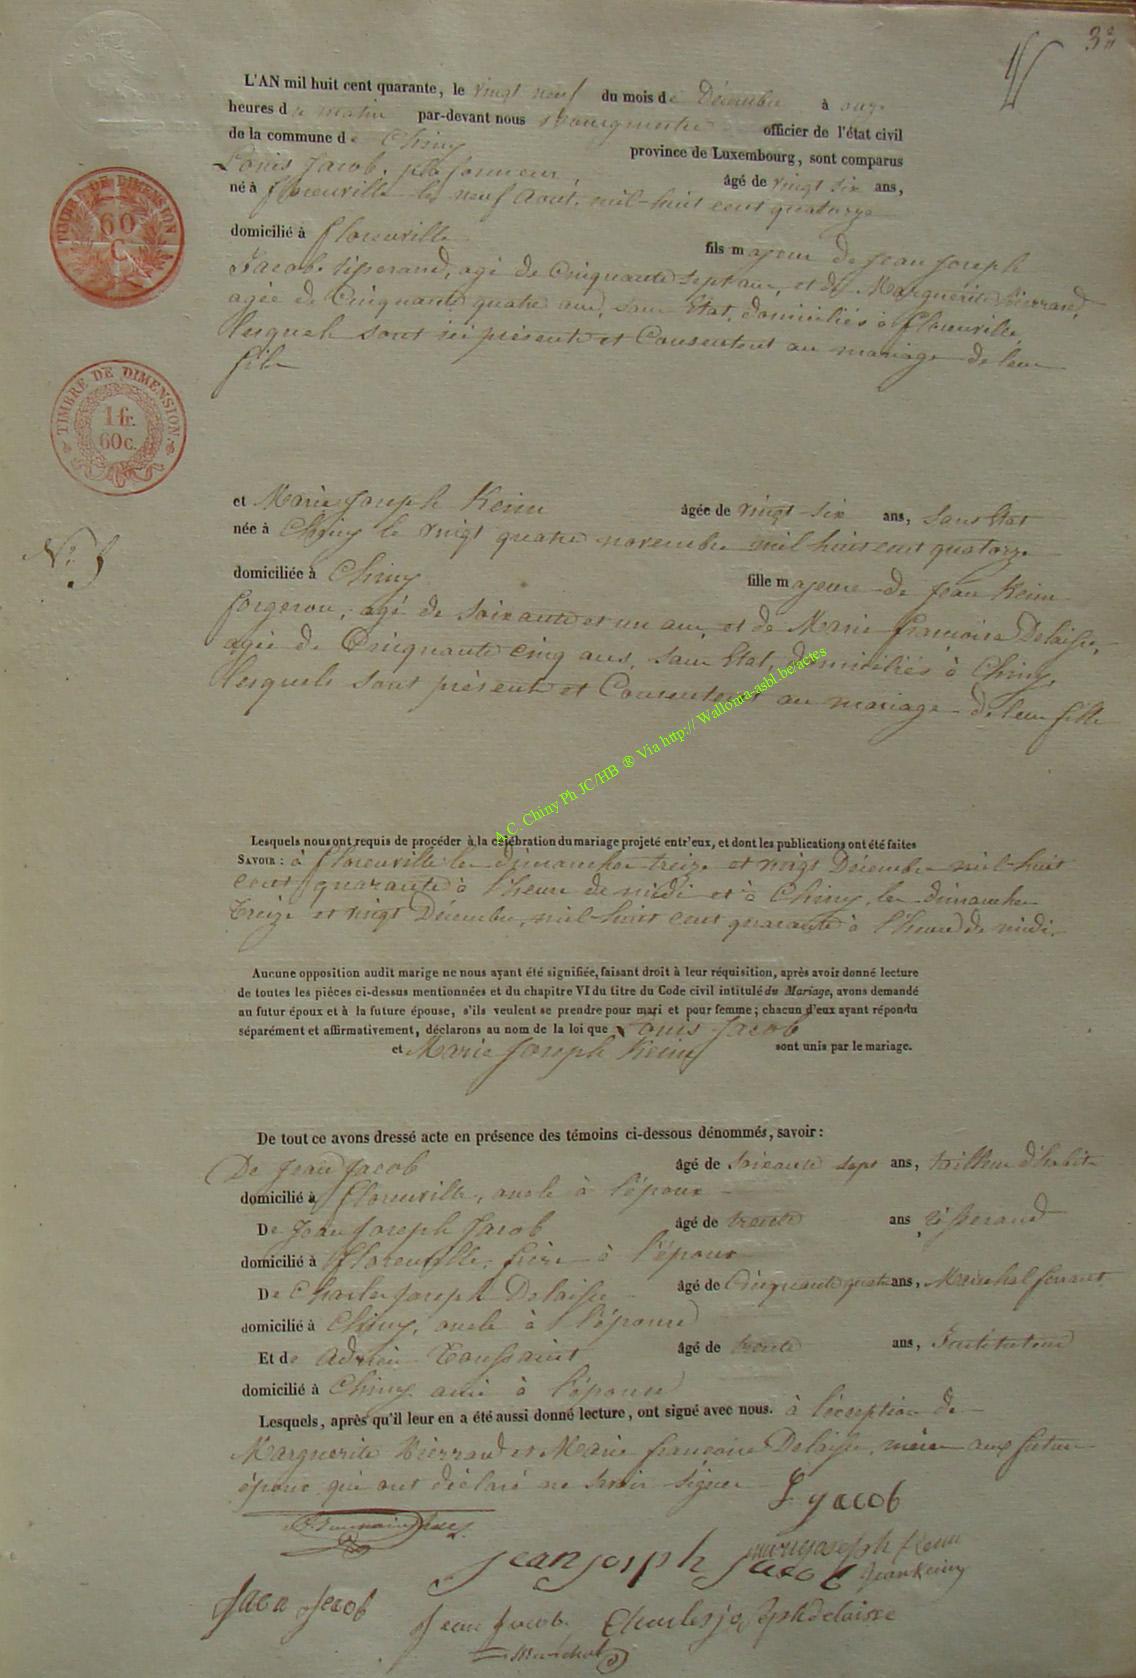 3e
L'AN mil huit cent quarante, le vingt neuf du mois de Décembre à onze
heures du matin par-devant nous Bourgmestre officier de l'état civil
de la commune de Chiny province de Luxembourg, sont comparus
Louis Jacob, plafonneur, âgé de vingt six ans,
né à florenville le neuf aout, mil-huit cent quatorze
domicilié à florenville fils majeur de Jean Joseph
Jacob tisserand, agé de Cinquante sept ans, et de Marguérite Pierrand,
agée de Cinquante quatre ans, sans Etat, domiciliés à florenville,
lesquels sont ici présents et Consentent au mariage de leur
fils
et Marie Joseph Keim âgée de vingt-six ans, sans Etat
née à Chiny le vingt quatre novembre mil huit cent quatorze
domiciliée à Chiny fille majeure de Jean Keim
N° 5
forgeron, agé de soixante et un ans, et de Marie françoise Delaisse,
agée de Cinquante cinq ans, sans Etat, domiciliés à Chiny,
lesquels sont présents et Consentent au mariage de leur fille
A.C. Chiny Ph JC/HB ® Via http:// Wallonia-asbl.be/actes
Lesquels nous ont requis de procéder à la célébration du mariage projeté entr'eux, et dont les publications ont été faites
SAVOIR : à florenville les dimanches treize et vingt Décembre mil-huit
cent quarante à l'heure de midi et à Chiny, les dimanches
treize et vingt Décembre, mil-huit cent quarante à l'heure de midi.
Aucune opposition audit marige ne nous ayant été signifiée, faisant droit à leur réquisition, après avoir donné lecture
de toutes les pièces ci-dessus mentionnées et du chapitre VI du titre du Code civil intitulé du Mariage, avons demandé
au futur époux et à la future épouse, s'ils veulent se prendre pour mari et pour femme ; chacun d'eux ayant répondu
séparément et affirmativement, déclarons au nom de la loi que Louis Jacob
et Marie Joseph Keim sont unis par le mariage.
De tout ce avons dressé acte en présence des témoins ci-dessous dénommés, savoir :
De Jean Jacob âgé de soixante sept ans, tailleur d'habits
domicilié à florenville, oncle à l'époux
De Jean Joseph Jacob âgé de trente ans tisserand
domicilié à florenville, frère à l'époux
De Charles Joseph Delaisse âgé de Cinquante quatre ans, Maréchal ferrant
domicilié à Chiny, oncle à l'épouse
Et de Adrien Toussaint âgé de trente ans, Instituteur
domicilié à Chiny ami à l'épouse
Lesquels, après qu'il leur en a été aussi donné lecture, ont signé avec nous. à l'éxception de
Marguerite Pierrand et Marie françoise Delaisse, mères aux futurs
époux qui ont déclaré ne savoir signer
L Jacob
marie joseph Keim
jean joseph Jacob
Jean Keim
Jean Jacob
Jean Jacob
Charles joseph delaisse
TIMBRE DE DIMENSION
60
C
TIMBRE DE DIMENSION
1 fr.
60 c.